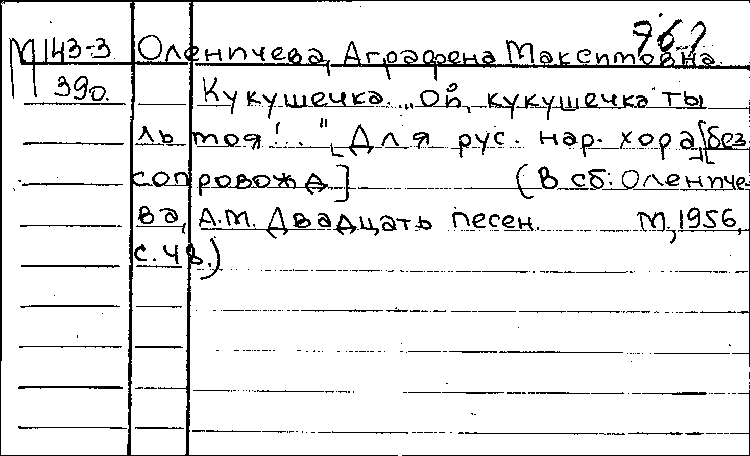 961
М 143-3 Оленичева, Аграфена Максимовна.
390. Кукушечка. „Ой, кукушечка ты
ль моя!.." [Для рус. нар. хора] [без
сопровожд] (В сб: Олениче-
ва, А.М. Двадцать песен. М, 1956,
с. 48.)